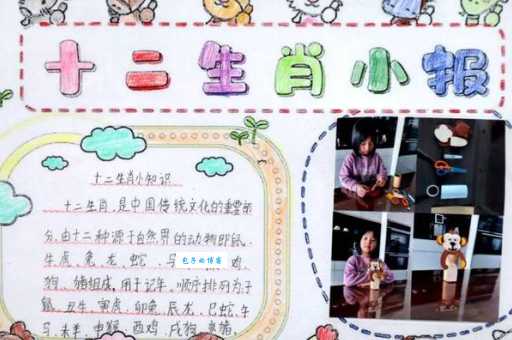 十二生肖小报
十二生肖小知识
十二生肖，是中国传统文化的重要部
分，由十二种源于自然界的动物即鼠、
牛、虎、兔、龙、蛇、马、鸡、
狗、猪组成，用于记年，顺序排列为子
鼠、丑牛、寅虎、卯兔、辰龙、巳蛇、午
马、未羊、申猴、酉鸡、戌狗、亥猪。